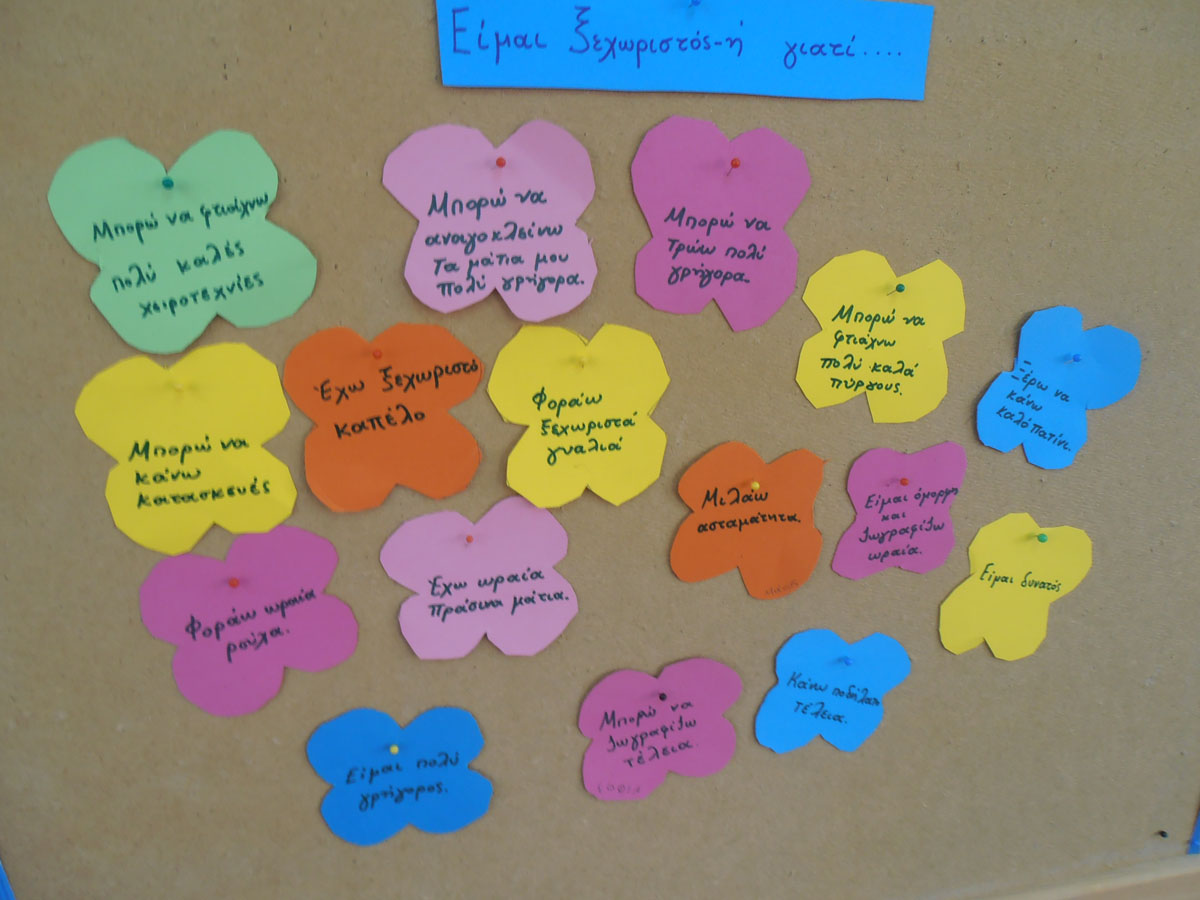 Είμαι ξεχωριστός-ή γιατί....
Μπορώ να φτιάχνω
πολύ καλές
χειροτεχνίες
Μπορώ να
ανοιγοκλείνω
τα μάτια μου
πολύ γρήγορα.
Μπορώ να
τρώω πολύ
γρήγορα.
Μπορώ να
φτιάχνω
πολύ καλά
πύργους.
Ξέρω να
κάνω
καλό πατίνι.
Μπορώ να
κάνω
κατασκευές
Έχω ξεχωριστό
καπέλο
Φοράω
ξεχωριστά
γυαλιά
Μιλάω
ασταμάτητα.
Είμαι όμορφη
και
ζωγραφίζω
ωραία.
Είμαι δυνατός
Φοράω ωραία
ρούχα.
Έχω ωραία
πράσινα μάτια.
Κάνω ποδήλατο
τέλεια.
Μπορώ να
ζωγραφίζω
τέλεια.
Είμαι πολύ
γρήγορος.